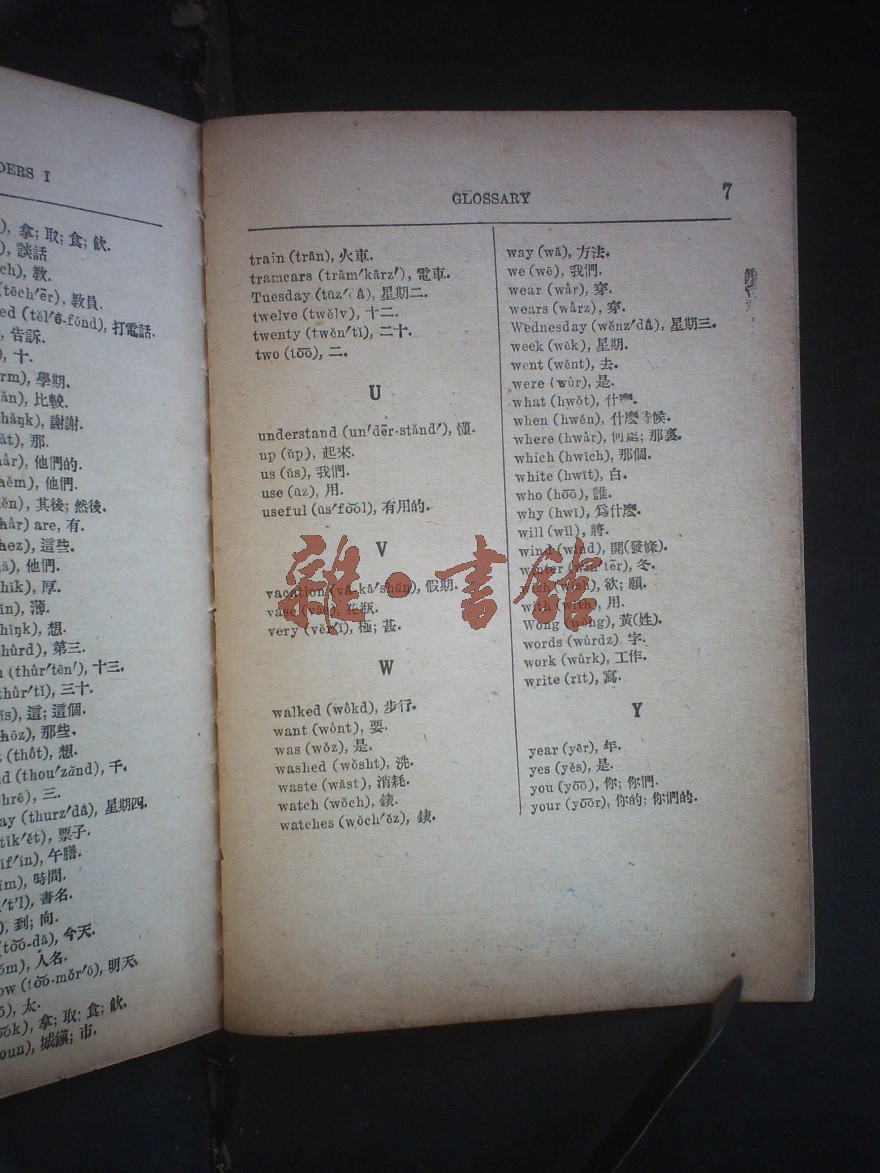 DERS I
), 拿; 取; 食; 飲.
), 談話
ch), 教.
(tēch′ẽr), 教員.
ed (tĕl′ē-fōnd), 打電話.
, 告訴.
), 十.
rm), 學期.
ăn), 比較.
hăŋk), 謝謝.
ăt), 那.
âr), 他們的.
hĕm), 他們.
ĕn), 其後; 然後.
hâr) are, 有.
hez), 這些.
ā), 他們.
hĭk), 厚.
ĭn), 薄.
hĭŋk), 想.
hûrd), 第三.
n (thûr′tēn′), 十三.
thûr′tĭ), 三十.
ĭs), 這; 這個.
hōz), 那些.
t (thôt), 想.
nd (thou′zănd), 千.
hrē), 三.
ay (thurz′då), 星期四.
tĭk′ĕt), 票子.
ĭf′ĭn), 午膳.
īm), 時間.
ī′t'l), 書名.
), 到; 向.
(to͞o-dā), 今天.
ŏm), 人名.
ow (to͞o-mŏr′ō), 明天.
ō), 太.
o͝ok), 拿; 取; 食; 飲.
oun), 城鎭; 市.
GLOSSARY 7
train (trān), 火車.
tramcars (trăm′kärz′), 電車.
Tuesday (tūz′då), 星期二.
twelve (twĕlv), 十二.
twenty (twĕn′tĭ), 二十.
two (to͞o), 二.
U
understand (un′dẽr-stănd′), 懂.
up (ŭp), 起來.
us (ŭs), 我們.
use (ūz), 用.
useful (ūs′fo͝ol), 有用的.
V
vacation (vā-kā′shŭn), 假期.
vase (vās), 花瓶.
very (vĕr′ĭ), 極; 甚.
W
walked (wôkd), 步行.
want (wônt), 要.
was (wŏz), 是.
washed (wŏsht), 洗.
waste (wāst), 消耗.
watch (wŏch), 錶.
watches (wŏch′ĕz), 錶.
way (wā), 方法.
we (wē), 我們.
wear (wâr), 穿.
wears (wârz), 穿.
Wednesday (wĕnz′då), 星期三.
week (wēk), 星期.
went (wĕnt), 去.
were (wûr), 是.
what (hwŏt), 什麽.
when (hwĕn), 什麽時候.
where (hwâr), 何處; 那裏.
which (hwĭch), 那個.
white (hwīt), 白.
who (ho͞o), 誰.
why (hwī), 爲什麽.
will (wĭl), 將.
wind (wīnd), 開(發條).
winter (wĭn′tẽr), 冬.
wish (wĭsh), 欲; 願.
with (wĭth), 用.
Wong (wŏng), 黃(姓).
words (wûrdz), 字.
work (wûrk), 工作.
write (rīt), 寫.
Y
year (yēr), 年.
yes (yĕs), 是.
you (yo͞o), 你; 你們.
your (yo͞or), 你的; 你們的.
雜·書館